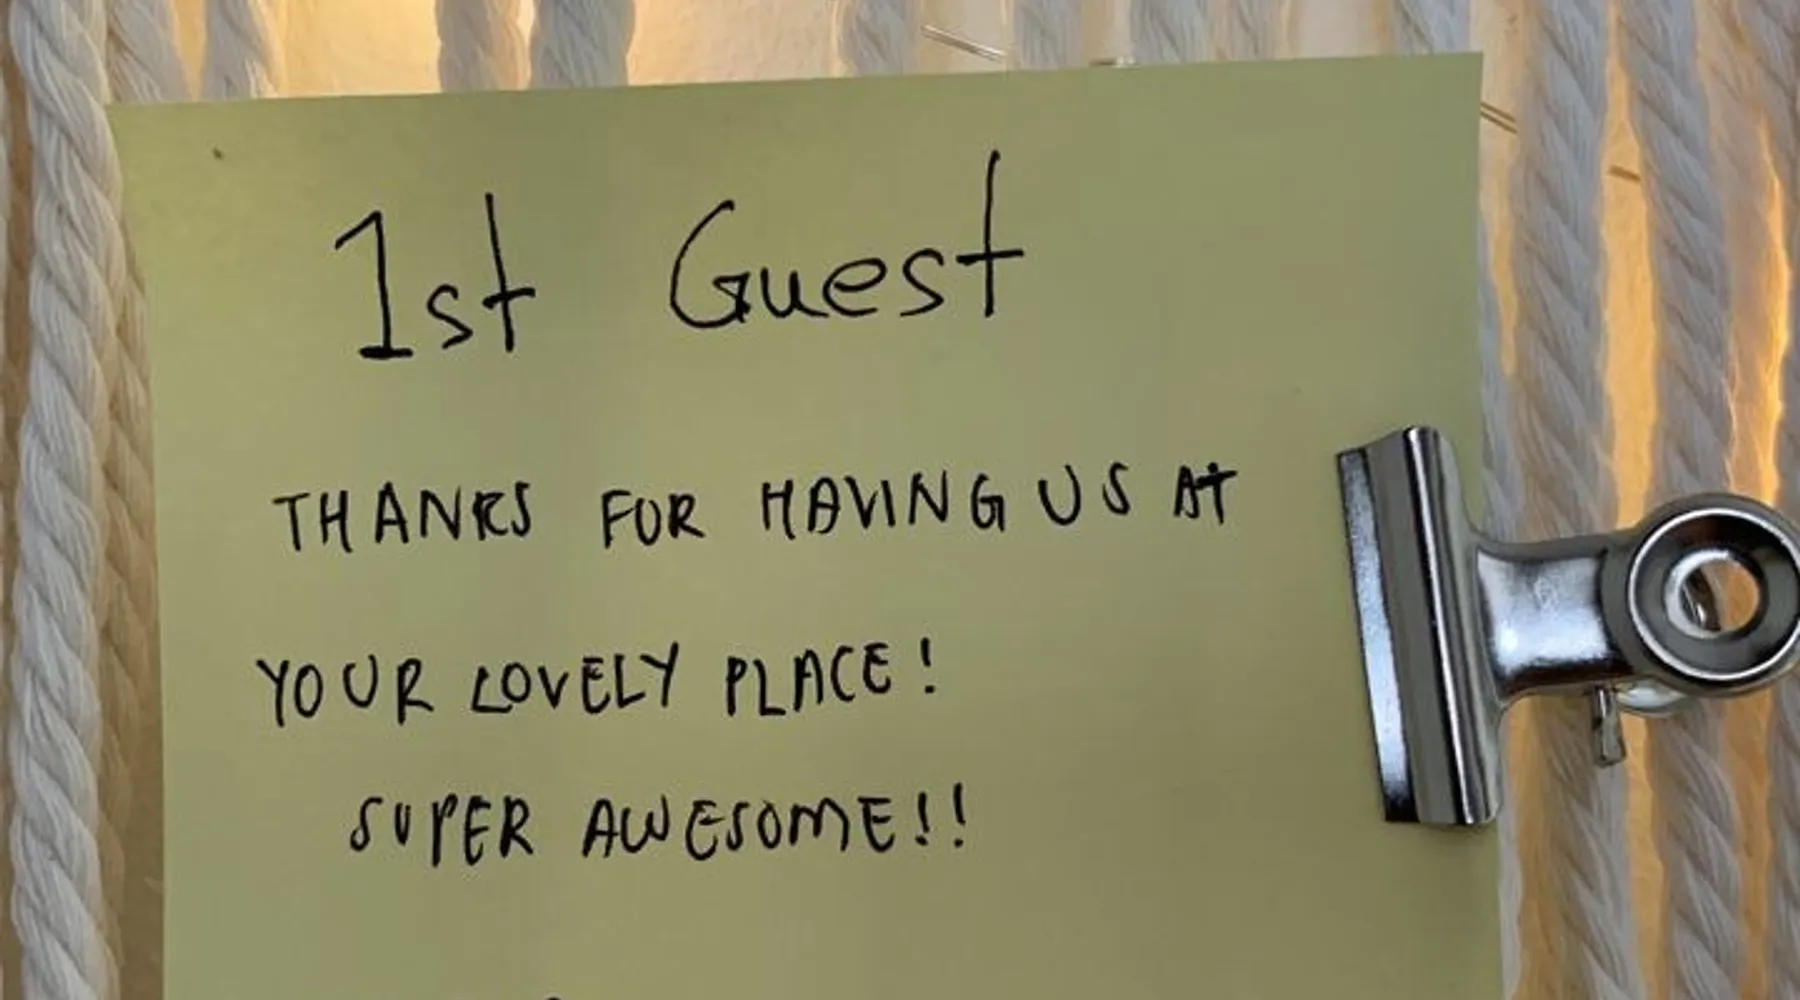 1st Guest
THANKS FOR HAVING US AT
YOUR LOVELY PLACE!
SUPER AWESOME!!